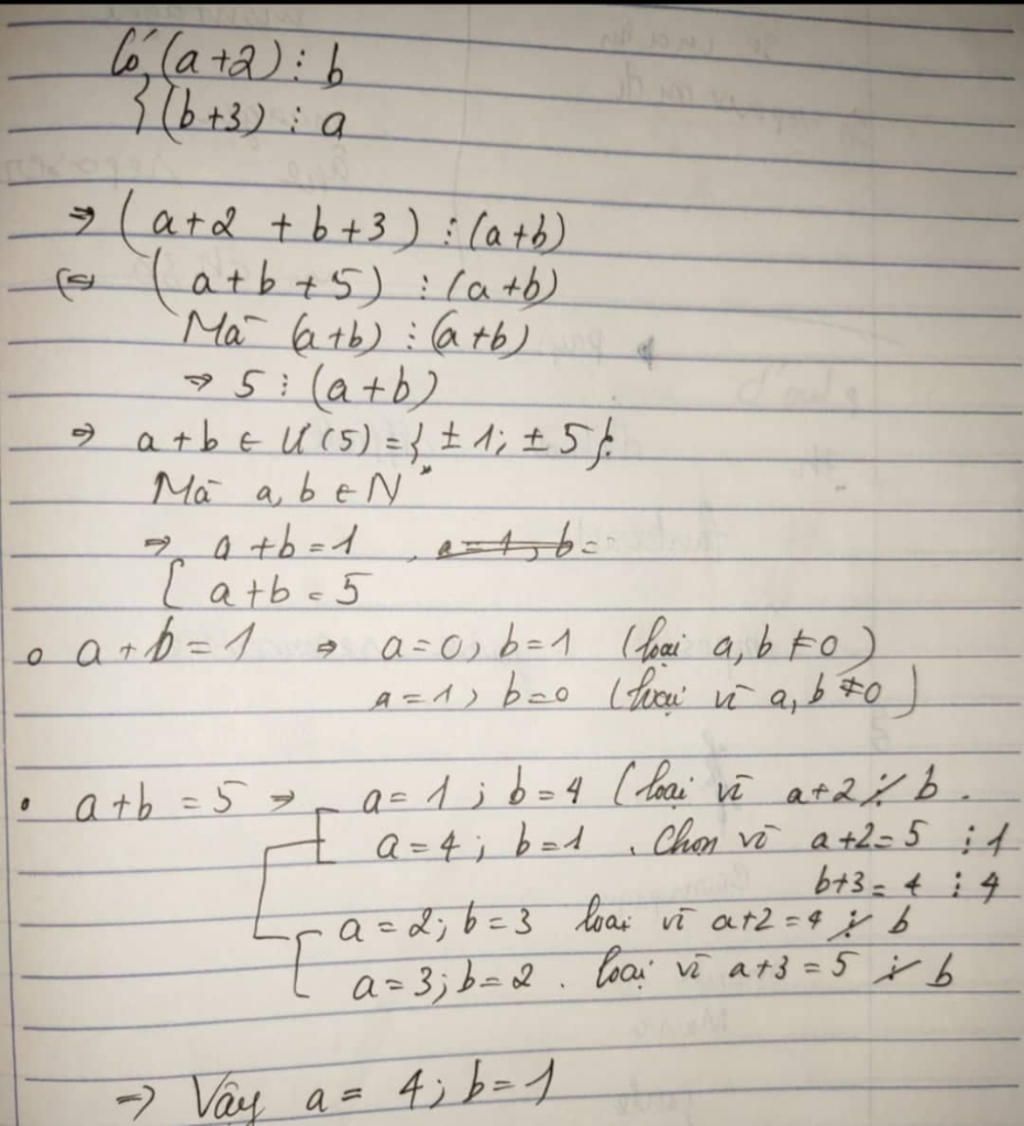 Có, (a+2) ⋮ b
{ (b+3) ⋮ a
⇒ (a+2 + b+3) ⋮ (a+b)
(⇔ (a+b+5) ⋮ (a+b)
Mà (a+b) ⋮ (a+b)
⇒ 5 ⋮ (a+b)
⇒ a+b ∈ Ư(5) = {±1; ±5}
Mà a, b ∈ N*
⇒ [ a+b = 1
a+b = 5
o a+b = 1 ⇒ a=0, b=1 (loại a, b ≠0)
a=1, b=0 (loại vì a, b ≠0)
• a+b = 5 ⇒ a=1; b=4 (loại vì a+2 ⋮̸ b.
a=4; b=1. Chọn vì a+2=5 ⋮ 1
b+3 = 4 ⋮ 4
a=2; b=3 loại vì a+2=4 ⋮̸ b
a=3; b=2. loại vì a+3=5 ⋮̸ b
⇒ Vậy a = 4; b=1